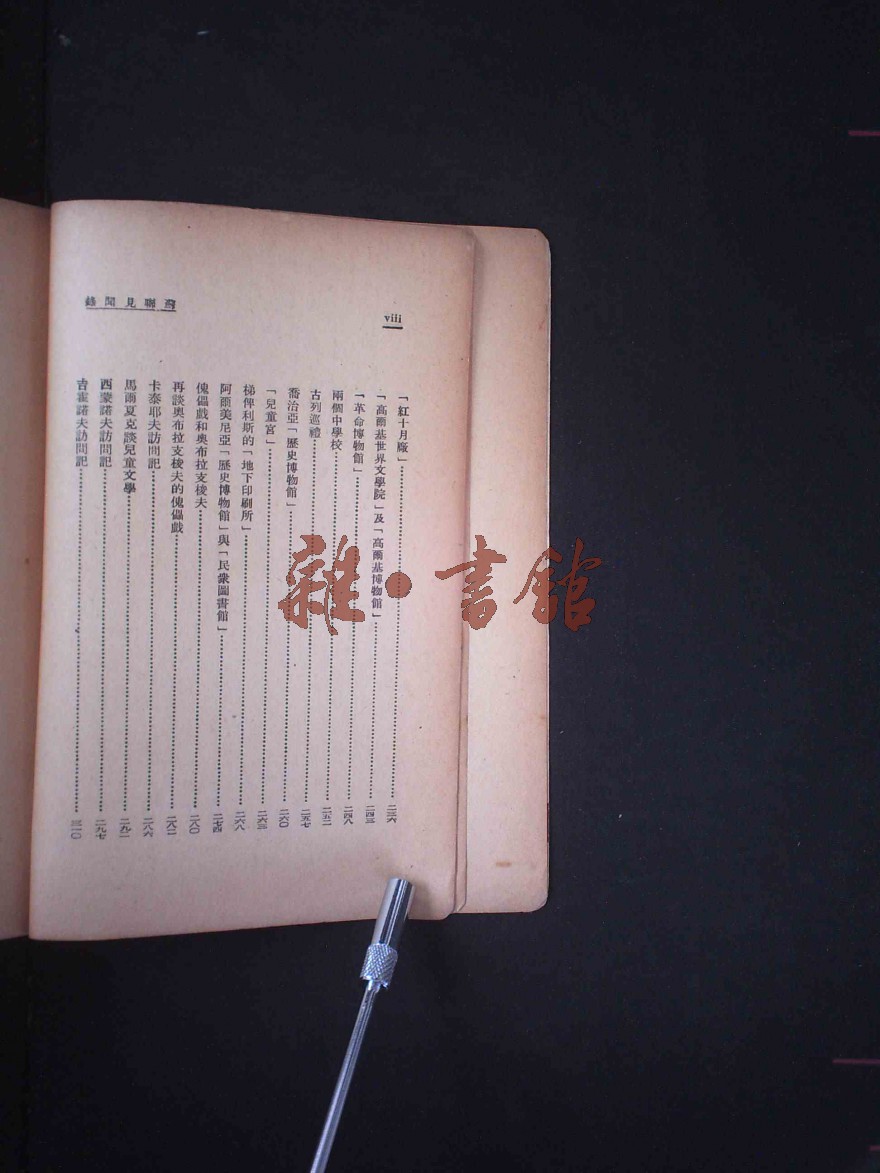 蘇聯見聞錄
viii
「紅十月廠」……二三六
「高爾基世界文學院」及「高爾基博物館」……二四三
「革命博物館」……二四八
兩個中學校……二五二
古列巡禮……二五七
喬治亞「歷史博物館」……二六〇
「兒童宮」……二六三
梯俾利斯的「地下印刷所」……二六八
阿爾美尼亞「歷史博物館」與「民衆圖書館」……二七四
傀儡戲和奧布拉支梭夫……二八〇
再談奧布拉支梭夫的傀儡戲……二八二
卡泰耶夫訪問記……二八六
馬爾夏克談兒童文學……二九二
西蒙諾夫訪問記……二九七
吉霍諾夫訪問記……三一〇
雜·書館